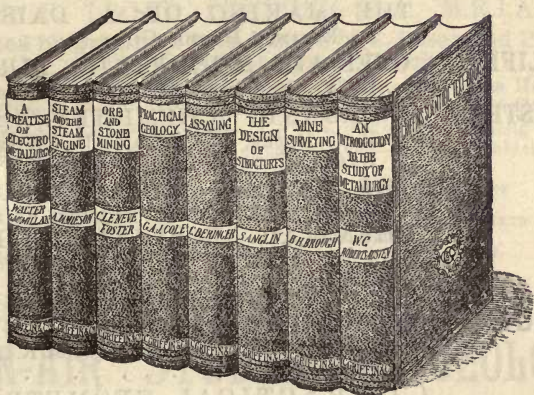 A
TREATISE
ON
ELECTRO
METALLURGY
WALTER
G. MCMILLAN
C. GRIFFIN & Co
STEAM
AND THE
STEAM
ENGINE
A. JAMIESON
C. GRIFFIN & Co
ORE
AND
STONE
MINING
C. LE NEVE
FOSTER
C. GRIFFIN & Co
PRACTICAL
GEOLOGY
G.A.J. COLE
C. GRIFFIN & Co
ASSAYING
C. BERINGER
C. GRIFFIN & Co
THE
DESIGN
OF
STRUCTURES
S. ANGLIN
C. GRIFFIN & Co
MINE
SURVEYING
B H BROUGH
C. GRIFFIN & Co
AN
INTRODUCTION
TO THE
STUDY OF
METALLURGY
W. C
ROBERTS-AUSTEN
C. GRIFFIN & Co
GRIFFIN'S SCIENTIFIC TEXT-BOOKS